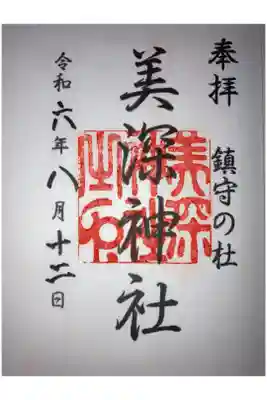 奉拝
鎮守の杜
美深神社
美深神社之印
令和六年八月十二日